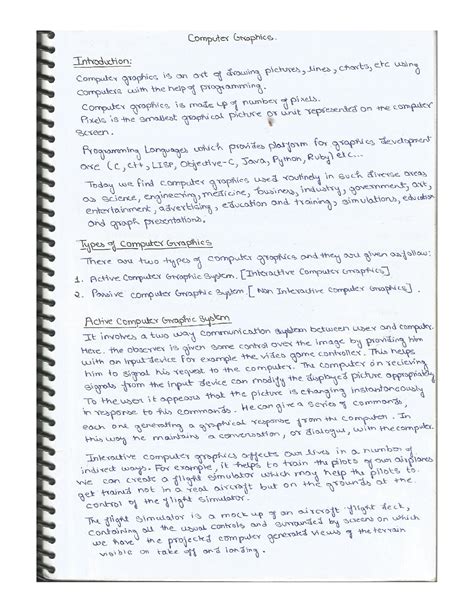 Computer Graphics.
Introduction:
Computer graphics is an art of drawing pictures, lines, charts, etc using
computers with the help of programming.
Computer graphics is made up of number of pixels.
Pixels is the smallest graphical picture or unit represented on the computer
screen.
Programming Languages which provides platform for graphics development
are (C, C++, LISP, Objective-C, Java, Python, Ruby) etc...
Today we find computer graphics used routinely in such diverse areas
as science, engineering, medicine, business, industry, government, art,
entertainment, advertising, education and training, simulations, education
and graph presentations.
Types of Computer Graphics
There are two types of computer graphics and they are given as follow:
1. Active Computer Graphic System. [Interactive Computer Graphics]
2. Passive computer Graphic System [Non Interactive computer Graphics].
Active Computer Graphic System
It involves a two way communication system between user and computer.
Here. the observer is given some control over the image by providing him
with an input device for example the video game controller. This helps
him to signal his request to the computer. The computer on recieving
signals from the input device can modify the displayed picture appropriately
To the user it appears that the picture is changing instantaneously
in response to his commands. He can give a series of commands,
each one generating a graphical response from the computer. In
this way he maintains a conversation, or dialogue, with the computer.
Interactive computer graphics affects our lives in a number of
indirect ways. For example, it helps to train the pilots of our airplanes
We can create a flight simulator which may help the pilots to
get trained not in a real aircraft but on the grounds at the
control of the flight simulator.
The flight simulator is a mock up of an aircraft flight deck,
containing all the usual controls and surrounded by screens on which
we have the projected computer generated views of the terrain
visible on take off and landing.